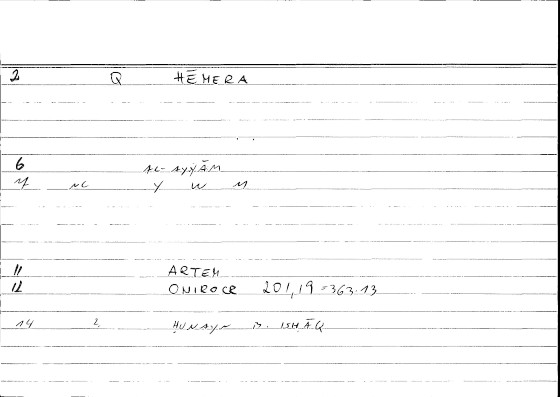 2 Q HĒMERA
6 AL-AYYĀM
M NC Y W M
11 ARTEM
12 ONIROCR 201,19=363.13
14 2 ḤUNAYN B. ISḤĀQ